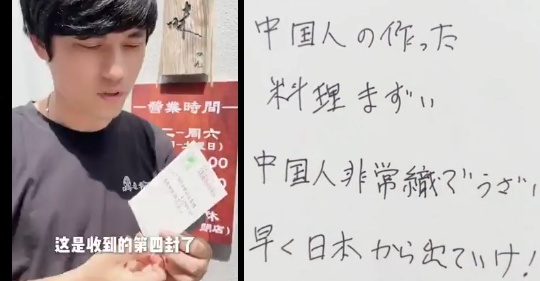 味
営業時間
二-周六
00
休
閉店)
这是收到的第四封了
中国人の作った
料理まずい
中国人非常織でうざい
早く日本から出ていけ!